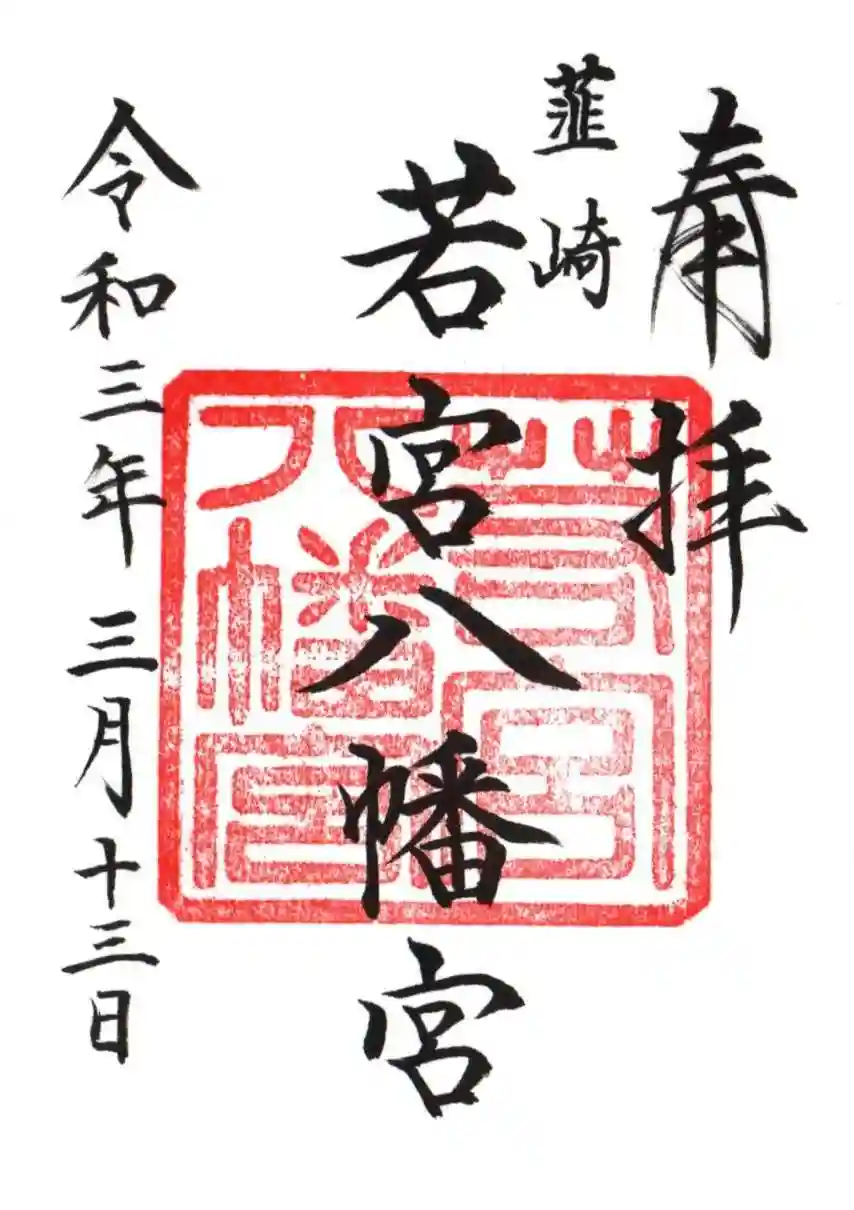 奉拝
韮崎
若宮八幡宮
若宮
八幡宮
令和三年三月十三日